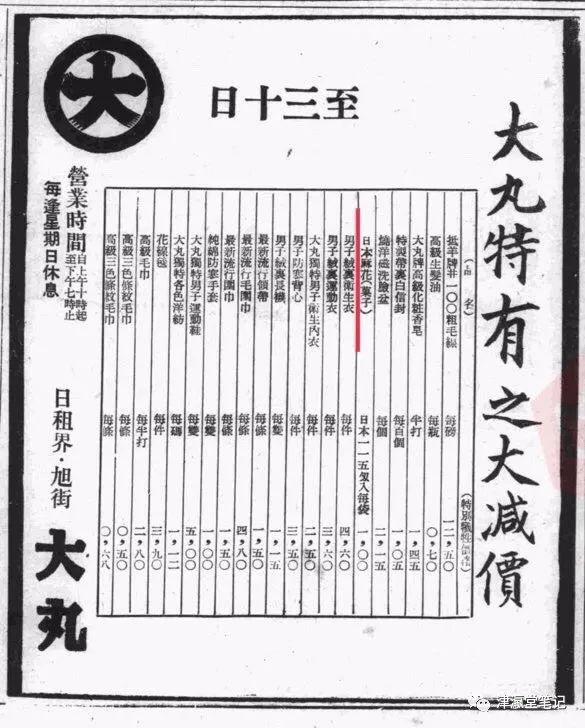 大丸特有之大減價
至三十日
(品名) (特別犧牲價格)
抵羊牌 一〇〇粗毛線 每磅 二,五〇
高級生髮油 每瓶 〇,七〇
大丸牌高級化粧香皂 半打 一,四五
特製帶裏白信封 每百個 一,〇五
燒洋磁洗臉盆 每個 二,一五
日本麻花(菓子) 日本一一五匁入每袋 一,〇〇
男子絨裏衛生衣 每件 四,六〇
男子絨裏運動衣 每件 三,六〇
大丸獨特男子衛生內衣 每件 二,五〇
男子防寒背心 每件 三,五〇
男子絨裏長襪 每雙 一,一五
最新流行領帶 每條 一,五〇
最新流行毛圍巾 每條 四,八〇
最新流行圍巾 每條 一,五〇
純綿防寒手套 每雙 一,〇〇
大丸獨特男子運動鞋 每雙 五,〇〇
大丸獨特各色洋紡 每碼 一,一二
花線毯 每件 三,九〇
高級毛巾 每半打 二,八〇
高級三色條紋毛巾 每條 〇,五〇
高級 色條紋毛巾 每條 〇,六八
大
營業時間 自上午十時起 至下午七時止
每逢星期日休息
日租界·旭街
大丸
津瀛堂笔记